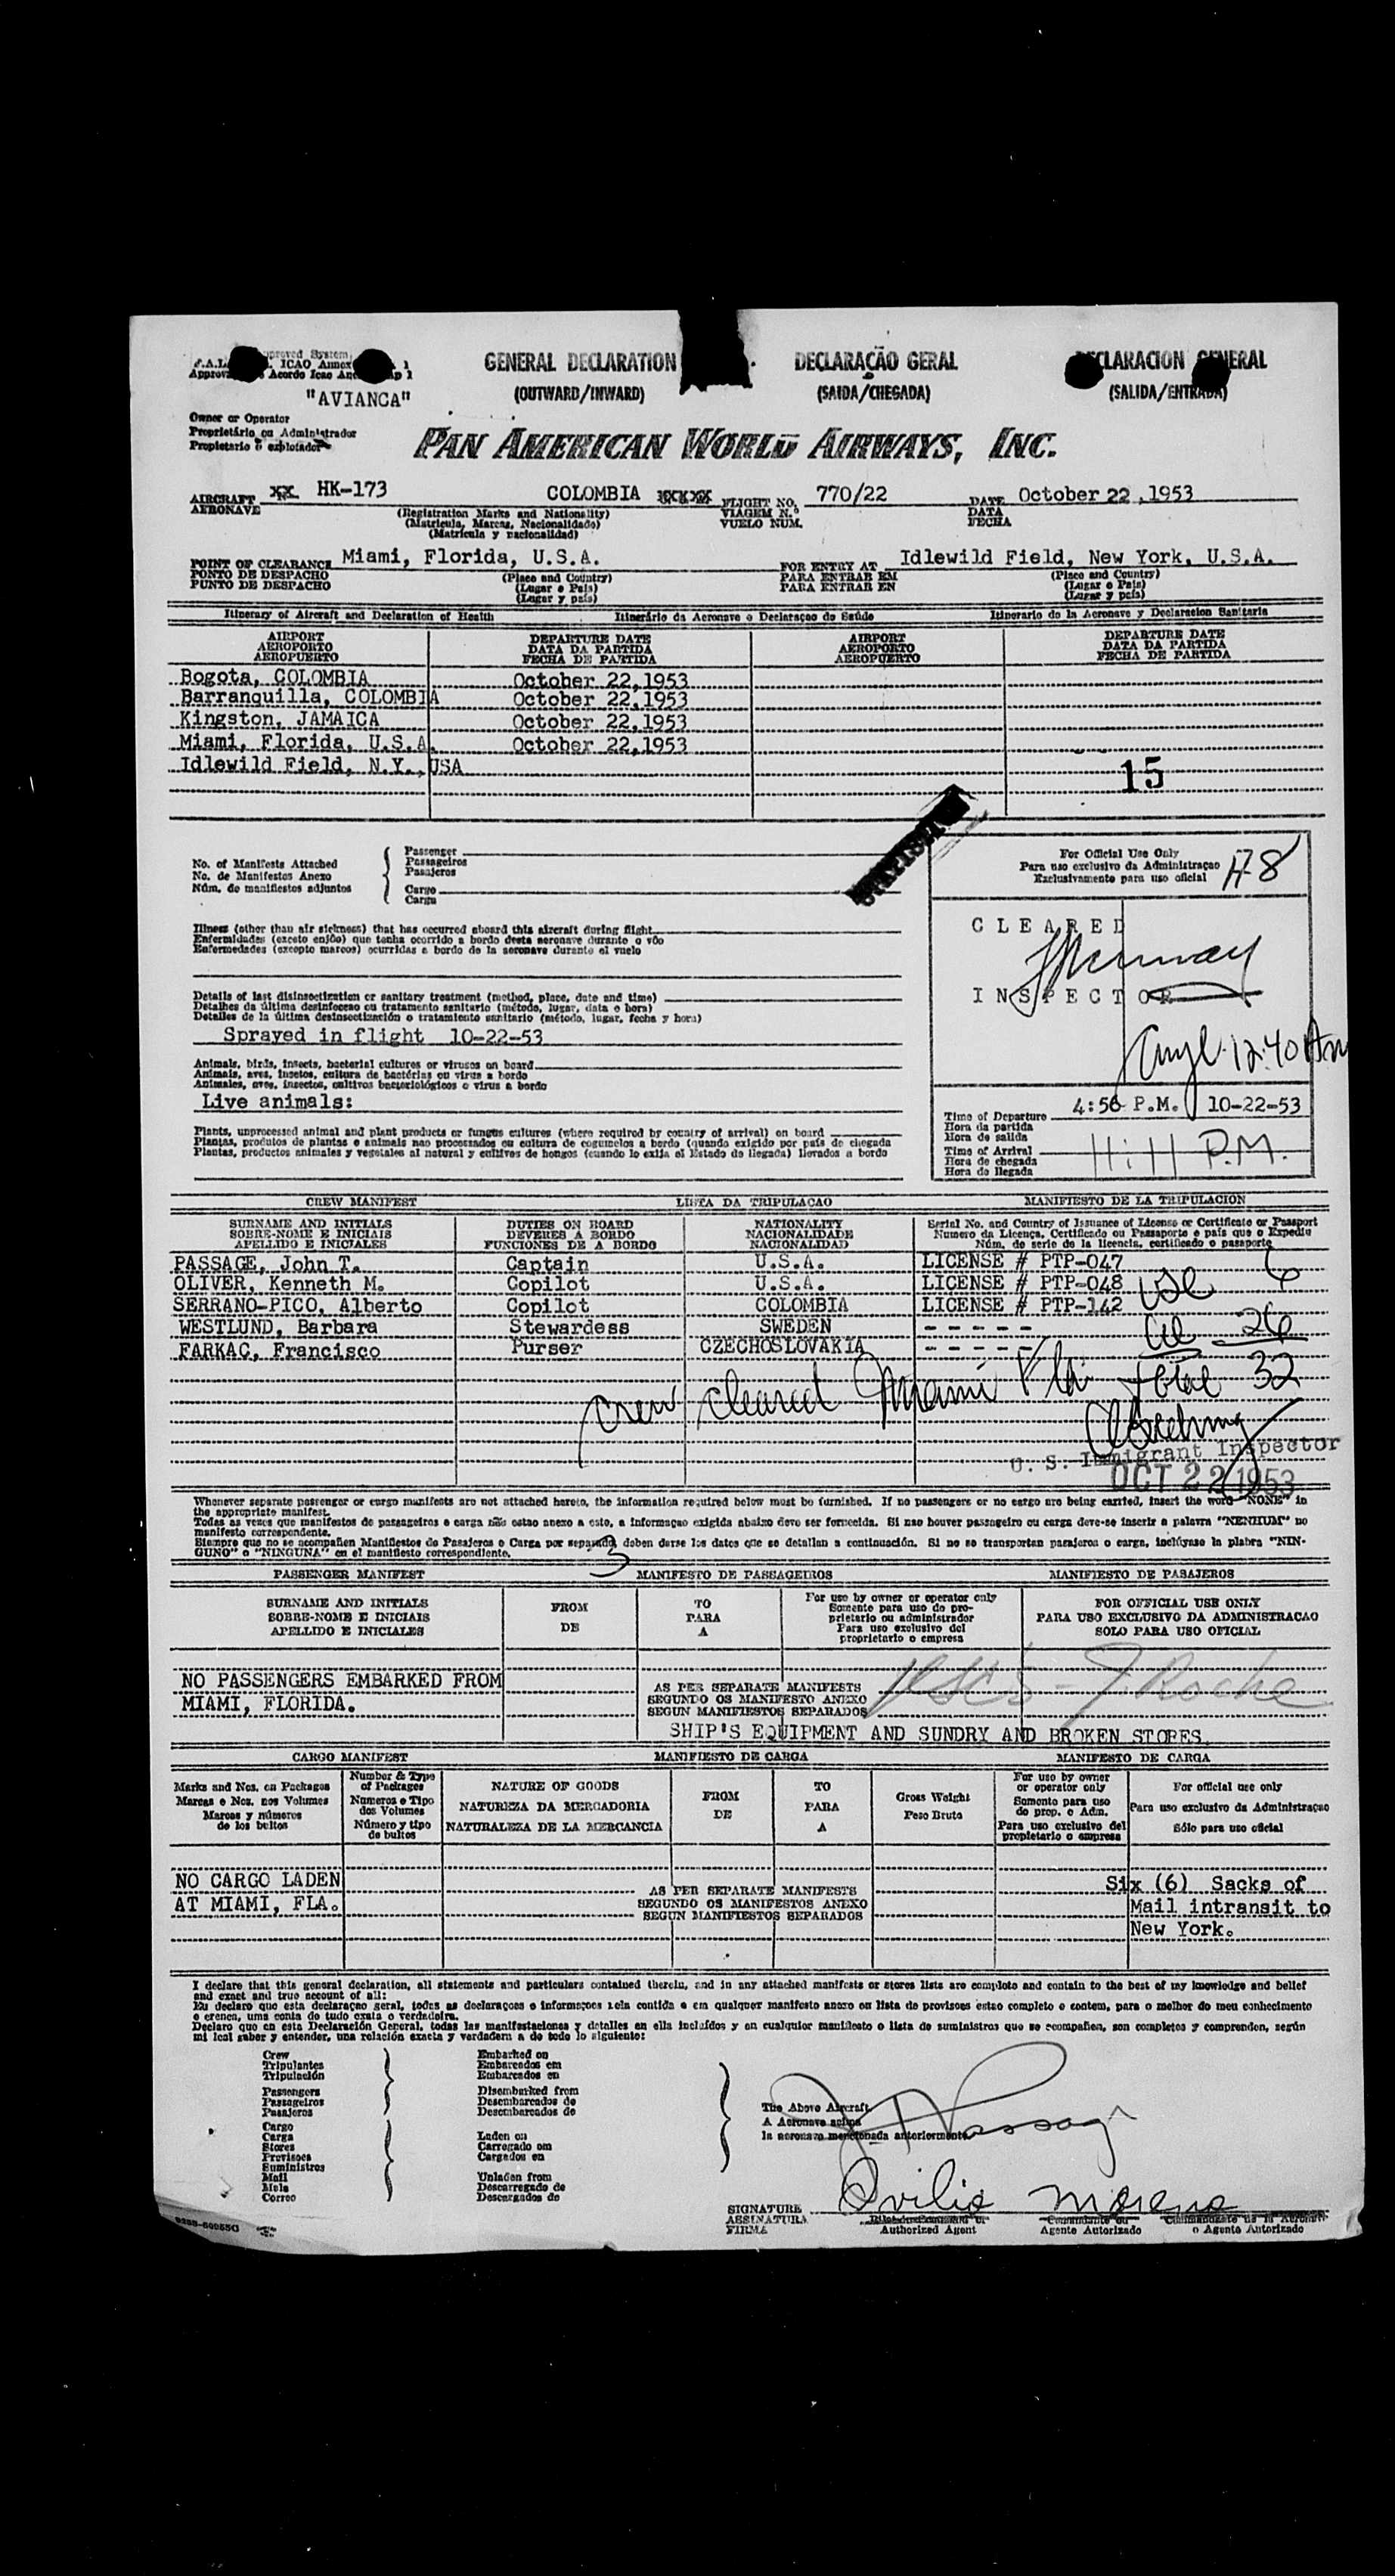 GENERAL DECLARATION
(OUTWARD/INWARD)
DECLARAÇÃO GERAL
(SAIDA/CHEGADA)
(SALIDA/ENTRADA)
"AVIANCA"
Owner or Operator
Proprietário ou Administrador
Propietario o explotador
PAN AMERICAN WORLD AIRWAYS, INC.
AIRCRAFT HK-173 COLOMBIA FLIGHT NO. 770/22 DATE October 22, 1953
AERONAVE VIAGEM N.º DATA
VUELO NUM. FECHA
(Registration Marks and Nationality)
(Matricula, Marcas, Nacionalidade)
(Matricula y nacionalidad)
POINT OF CLEARANCE Miami, Florida, U.S.A. FOR ENTRY AT Idlewild Field, New York, U.S.A.
PONTO DE DESPACHO (Place and Country) PARA ENTRAR EM (Place and Country)
PUNTO DE DESPACHO (Lugar e Pais) PARA ENTRAR EN (Lugar e Pais)
(Lugar y pais) (Lugar y pais)
Itinerary of Aircraft and Declaration of Health Itinerário da Aeronave e Declaraçao de Saúde Itinerario de la Aeronave y Declaracion Sanitaria
AIRPORT DEPARTURE DATE AIRPORT DEPARTURE DATE
AEROPORTO DATA DA PARTIDA AEROPORTO DATA DA PARTIDA
AEROPUERTO FECHA DE PARTIDA AEROPUERTO FECHA DE PARTIDA
Bogota, COLOMBIA October 22,1953
Barranquilla, COLOMBIA October 22,1953
Kingston, JAMAICA October 22,1953
Miami, Florida, U.S.A. October 22,1953
Idlewild Field, N.Y.,USA
15
No. of Manifests Attached
No. de Manifestos Anexo
Núm. de manifiestos adjuntos
Passenger
Passageiros
Pasajeros
Cargo
Carga
For Official Use Only
Para uso exclusivo da Administraçao
Exclusivamente para uso oficial
CLEARED
INSPECTOR
Illness (other than air sickness) that has occurred aboard this aircraft during flight
Enfermidades (exceto enjôo) que tenha ocorrido a bordo desta aeronave durante o vôo
Enfermedades (excepto mareos) ocurridas a bordo de la aeronave durante el vuelo
Details of last disinsectization or sanitary treatment (method, place, date and time)
Detalhes da última desinfeccao ou tratamento sanitario (método, lugar, data e hora)
Detalles de la última desinsectización o tratamiento sanitario (método, lugar, fecha y hora)
Sprayed in flight 10-22-53
12:40 Am
Animals, birds, insects, bacterial cultures or viruses on board
Animais, aves, insetos, cultura de bactérias ou virus a bordo
Animales, aves, insectos, cultivos bacteriológicos o virus a bordo
Live animals:
Plants, unprocessed animal and plant products or fungus cultures (where required by country of arrival) on board
Plantas, produtos de plantas e animais nao processados ou cultura de cogumelos a bordo (quando exigido por país de chegada
Plantas, productos animales y vegetales al natural y cultivos de hongos (cuando lo exija el Estado de llegada) llevados a bordo
Time of Departure 4:56 P.M. 10-22-53
Hora da partida
Hora de salida
Time of Arrival 11:11 P.M.
Hora de chegada
Hora de llegada
CREW MANIFEST LISTA DA TRIPULACAO MANIFIESTO DE LA TRIPULACION
SURNAME AND INITIALS DUTIES ON BOARD NATIONALITY Serial No. and Country of Issuance of License or Certificate or Passport
SOBRE-NOME E INICIAIS DEVERES A BORDO NACIONALIDADE Numero da Licença, Certificado ou Passaporte e país que o Expediu
APELLIDO E INICIALES FUNCIONES DE A BORDO NACIONALIDAD Núm. de serie de la licencia, certificado o pasaporte
PASSAGE, John T. Captain U.S.A. LICENSE # PTP-047
OLIVER, Kenneth M. Copilot U.S.A. LICENSE # PTP-048 6
SERRANO-PICO, Alberto Copilot COLOMBIA LICENSE # PTP-142
WESTLUND, Barbara Stewardess SWEDEN - - - - - 26
FARKAC, Francisco Purser CZECHOSLOVAKIA - - - - -
crew cleared Miami Fla total 32
U. S. Immigrant Inspector
OCT 22 1953
Whenever separate passenger or cargo manifests are not attached hereto, the information required below must be furnished. If no passengers or no cargo are being carried, insert the word "NONE" in
the appropriate manifest.
Todas as vezes que manifestos de passageiros e carga não estao anexo a esto, a informaçao exigida abaixo deve ser fornecida. Si nao houver passageiro ou carga deve-se inserir a palavra "NENHUM" no
manifesto correspondente.
Siempre que no se acompañen Manifiestos de Pasajeros o Carga por separado, deben darse los datos que se detallan a continuación. Si no se transportan pasajeros o carga, inclúyase la plabra "NIN-
GUNO" o "NINGUNA" en el manifiesto correspondiente.
3
PASSENGER MANIFEST MANIFESTO DE PASSAGEIROS MANIFIESTO DE PASAJEROS
SURNAME AND INITIALS FROM TO For use by owner or operator only FOR OFFICIAL USE ONLY
SOBRE-NOME E INICIAIS DE PARA Somente para uso do pro- PARA USO EXCLUSIVO DA ADMINISTRACAO
APELLIDO E INICIALES A prietario ou administrador SOLO PARA USO OFICIAL
Para uso exclusivo del
proprietario o empresa
NO PASSENGERS EMBARKED FROM
MIAMI, FLORIDA.
AS PER SEPARATE MANIFESTS
SEGUNDO OS MANIFESTO ANEXO
SEGUN MANIFIESTOS SEPARADOS
J. Roche
SHIP'S EQUIPMENT AND SUNDRY AND BROKEN STORES
CARGO MANIFEST MANIFIESTO DE CARGA MANIFESTO DE CARGA
Marks and Nos. on Packages
Marcas e Nos. nos Volumes
Marcas y números
de los bultos
Number & Type
of Packages
Numeros e Tipo
dos Volumes
Número y tipo
de bultos
NATURE OF GOODS
NATUREZA DA MERCADORIA
NATURALEZA DE LA MERCANCIA
FROM
DE
TO
PARA
A
Gross Weight
Peso Bruto
For use by owner
or operator only
Somento para uso
do prop. o Adm.
Para uso exclusivo del
propietario o empresa
For official use only
Para uso exclusivo da Administraçao
Sólo para uso oficial
NO CARGO LADEN
AT MIAMI, FLA.
AS PER SEPARATE MANIFESTS
SEGUNDO OS MANIFESTOS ANEXO
SEGUN MANIFIESTOS SEPARADOS
Six (6) Sacks of
Mail intransit to
New York.
I declare that this general declaration, all statements and particulars contained therein, and in any attached manifests or stores lists are complete and contain to the best of my knowledge and belief
and exact and true account of all:
Eu declaro que esta declaraçao geral, todas as declaraçoes e informaçoes nela contida e em qualquer manifesto anexo ou lista de provisoes estao completo e contem, para o melhor do meu conhecimento
e crenca, uma conta de tudo exata e verdadeira.
Declaro que en esta Declaración General, todas las manifestaciones y detalles en ella incluídos y en cualquier manifiesto o lista de suministros que se acompañen, son completos y comprenden, según
mi leal saber y entender, una relación exacta y verdadera a de todo lo siguiente:
Crew
Tripulantes
Tripulación
Passengers
Passageiros
Pasajeros
Cargo
Carga
Stores
Provisoes
Suministros
Mail
Mala
Correo
Embarked on
Embarcados em
Embarcados en
Disembarked from
Desembarcados de
Desembarcados de
Laden on
Carregado om
Cargados en
Unladen from
Descarregado de
Descargados de
The Above Aircraft
A Aeronave acima
la aeronave mencionada anteriormente
SIGNATURE Ovilio Moreno
ASSINATURA
FIRMA
Authorized Agent Agente Autorizado o Agente Autorizado